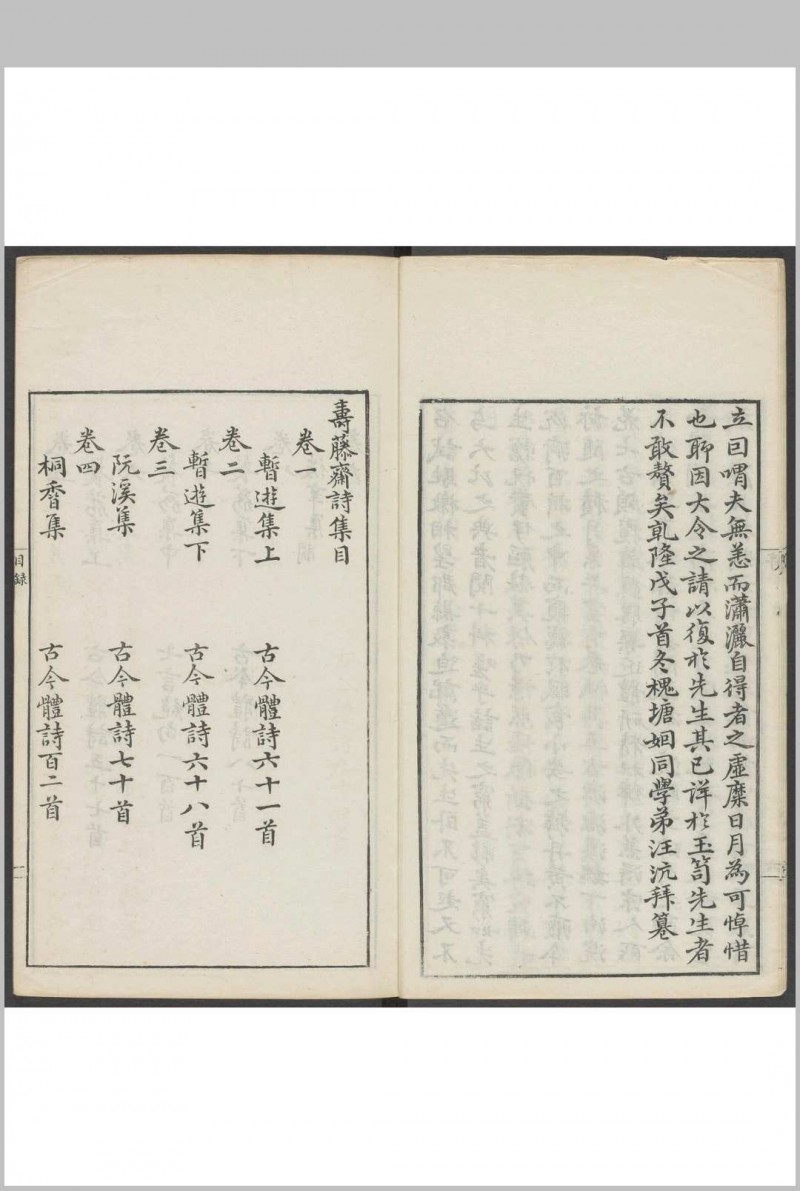 立曰喟夫無恙而瀟灑自得者之虛糜日月為可悼惜
也聊因大令之請以復於先生其已詳於玉笥先生者
不敢贅矣乾隆戊子首冬槐塘姻同學弟汪沆拜纂
壽藤齋詩集目
卷一
暫遊集上 古今體詩六十一首
卷二
暫遊集下 古今體詩六十八首
卷三
阮溪集 古今體詩七十首
卷四
桐香集 古今體詩百二首
目録
一